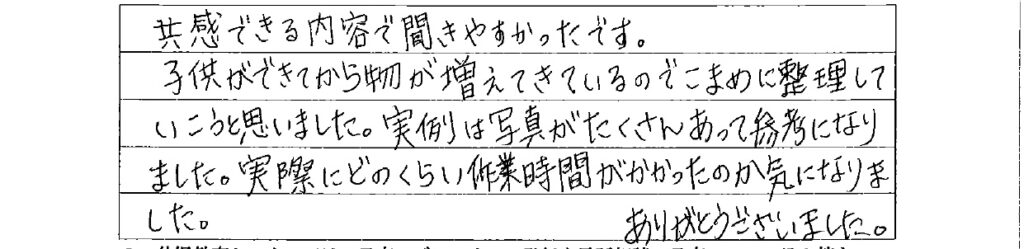 共感できる内容で聞きやすかったです。
子供ができてから物が増えてきているのでこまめに整理して
いこうと思いました。実例は写真がたくさんあって参考になり
ました。実際にどのくらい作業時間がかかったのか気になりま
した。 ありがとうございました。